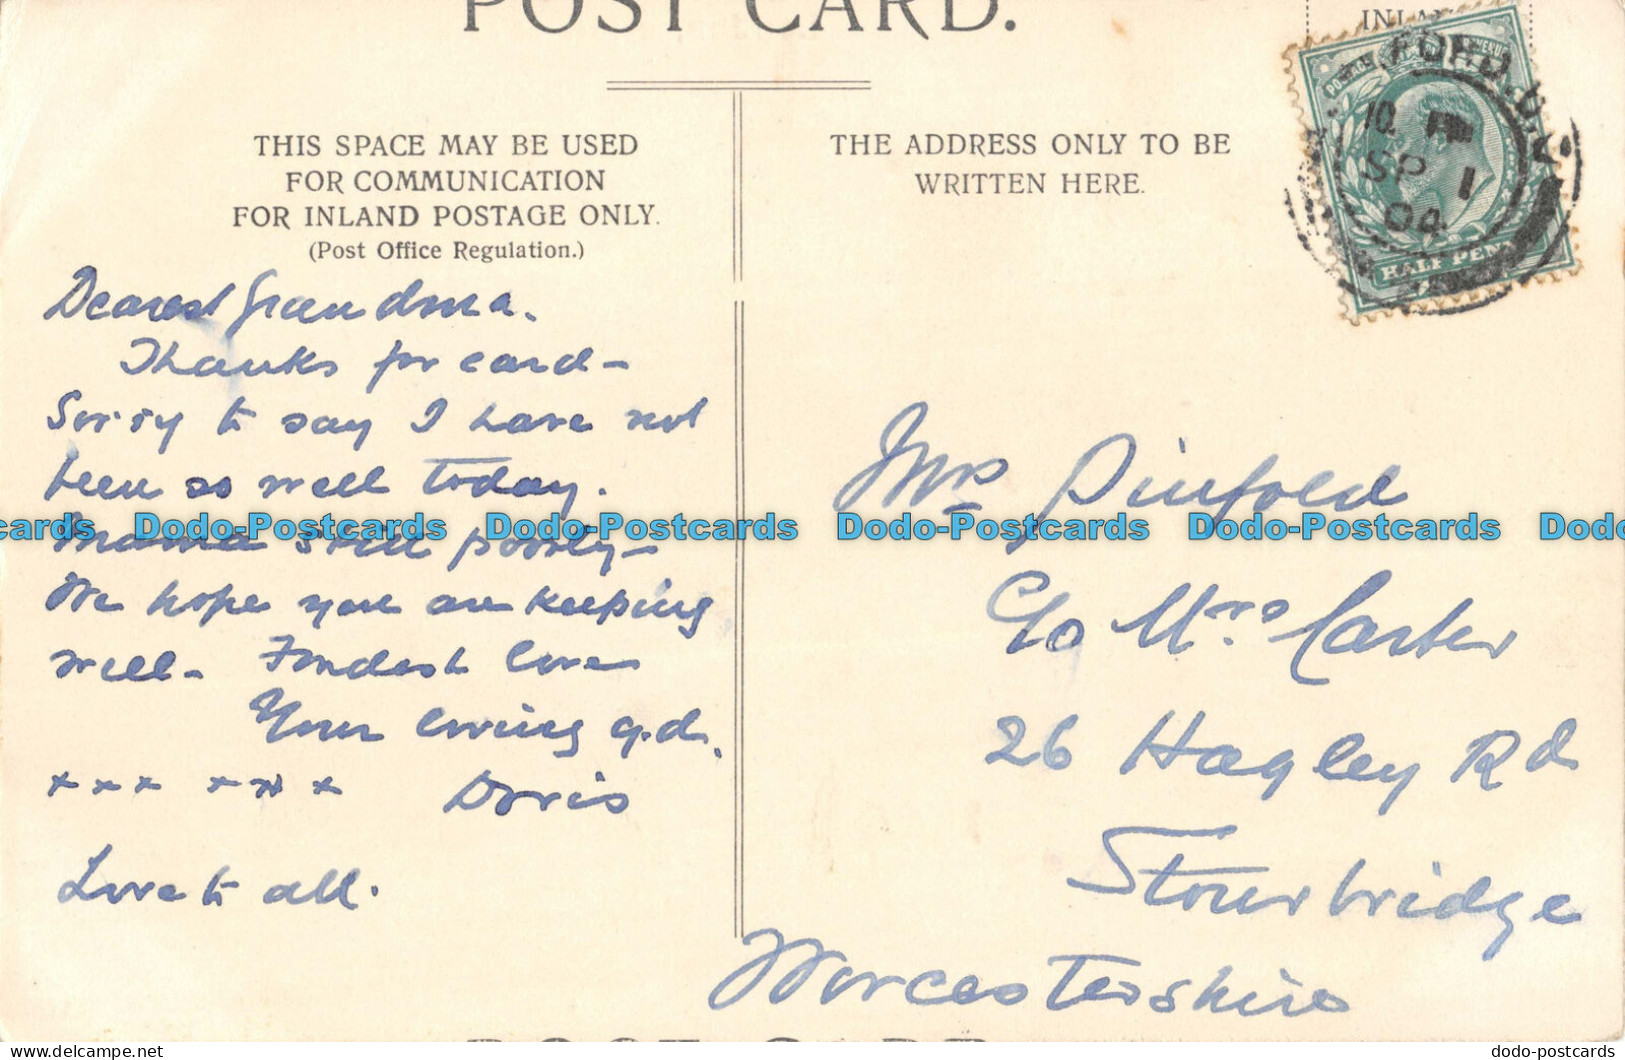 POST CARD.
THIS SPACE MAY BE USED
FOR COMMUNICATION
FOR INLAND POSTAGE ONLY.
(Post Office Regulation.)
Dearest Grandma.
Thanks for card-
Sorry to say I have not
been so well today.
Mama still poorly-
We hope you are keeping
well- Fondest love
Your loving g.d.
x x x x x x x Doris
Love to all.
THE ADDRESS ONLY TO BE
WRITTEN HERE.
10
SP 1
04
HALF PENNY
Mrs Pinfold
C/o Mrs Carter
26 Hagley Rd
Stourbridge
Worcestershire
cards Dodo-Postcards Dodo-Postcards Dodo-Postcards Dodo-Postcards Dodo
POST CARD
dodo-postcards